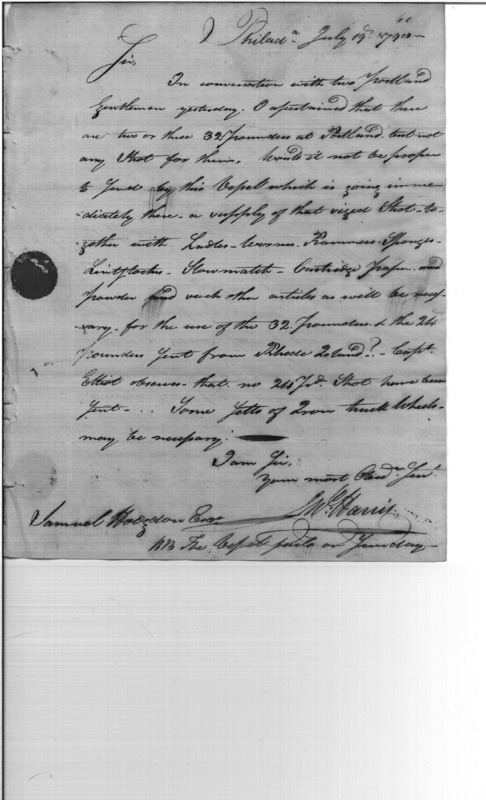 60
Philada July 19th 1798
Sir,
In conversation with two Portland
Gentlemen yesterday. I assertained that there
are two or three 32 Pounders at Portland but not
any Shot for them. Would it not be proper
to send by this Vessel which is going imme-
diately there a supply of that sized Shot-to-
gether with Ladles-Worms Rammers Sponges
Lintstocks-Slowmatch-Cartridge paper and
powder and such other articles as will be neces-
sary. for the use of the 32 Pounders & the 24
pounders sent from Rhode Island?-Capt.
Elliot observes-that no 24 Pd. Shot have been
sent-.. Some Setts of Iron truck Wheels-
may be necessary.
I am Sir,
Your most Obedt. Servt.
Samuel Hodgdon Esqr.
Harris
NB The Vessel sails on Sunday-